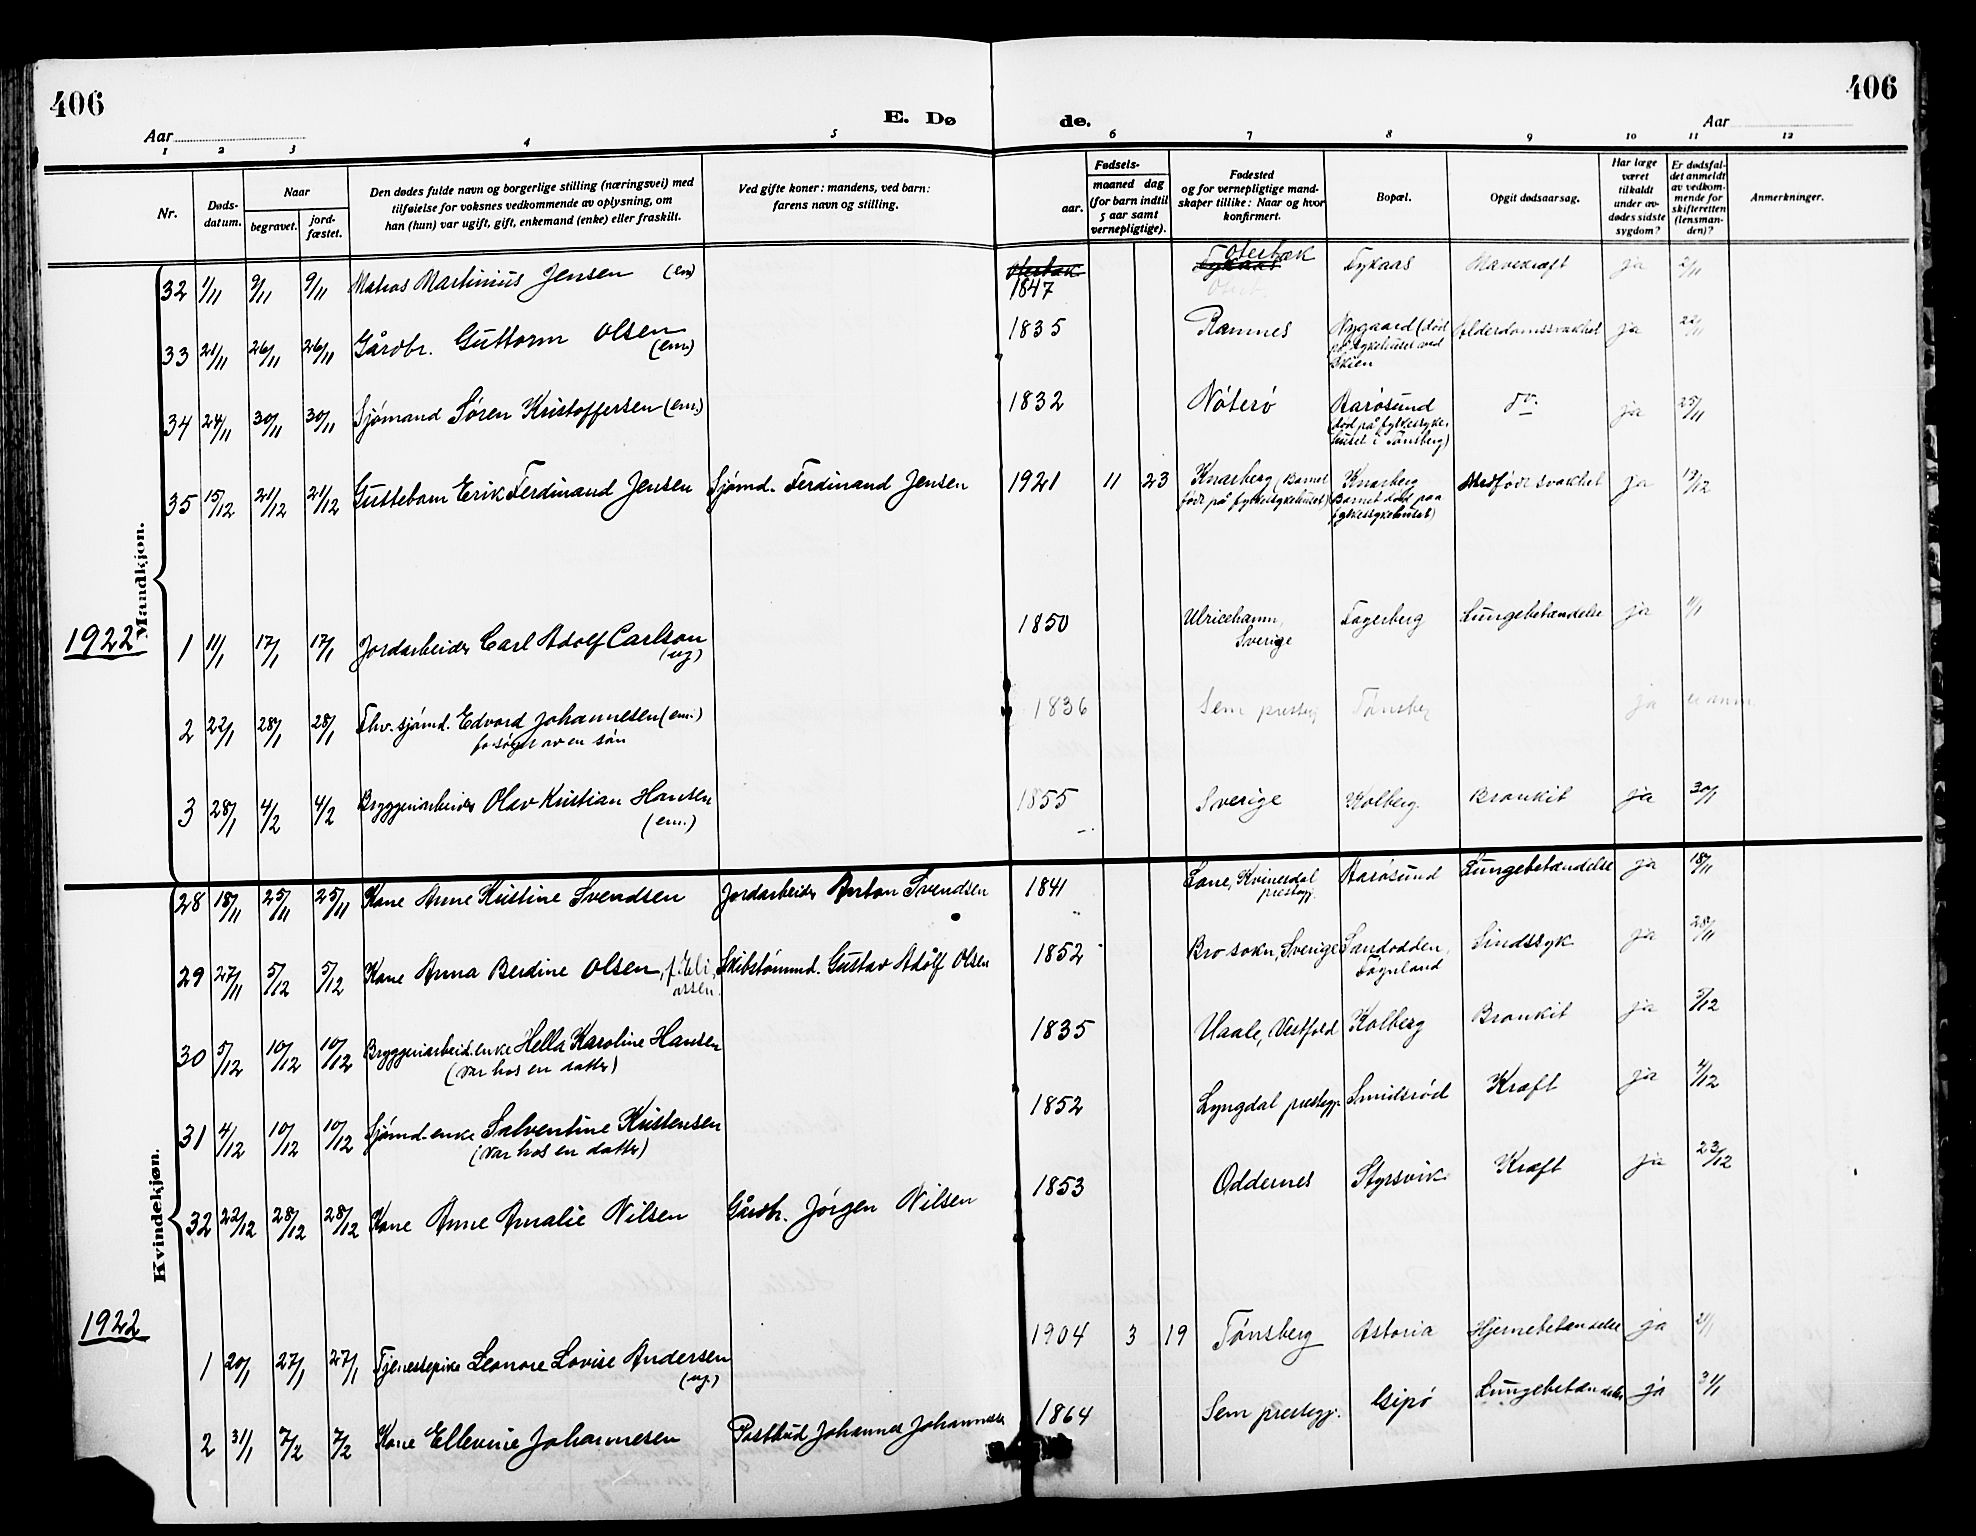 406
406
E. Dø de.
Aar
Aar
1 2 3 4 5 6 7 8 9 10 11 12
Nr.
Døds-
datum.
Naar
begravet.
jord-
fæstet.
Den dødes fulde navn og borgerlige stilling (næringsvei) med
tilføielse for voksnes vedkommende av oplysning, om
han (hun) var ugift, gift, enkemand (enke) eller fraskilt.
Ved gifte koner: mandens, ved barn:
farens navn og stilling.
Fødsels-
aar.
maaned dag
(for barn indtil
5 aar samt
vernepligtige).
Fødested
og for vernepligtige mand-
skaper tillike: Naar og hvor
konfirmert.
Bopæl.
Opgit dødsaarsag.
Har læge
været
tilkaldt
under av-
dødes sidste
sygdom?
Er dødsfal-
det anmeldt
av vedkom-
mende for
skifteretten
(lensman-
den)?
Anmerkninger.
Mandkjøn.
32 1/11 9/11 9/11 Matros Martinius Jensen (em) 1847 Oterbæk Tykaas Mavekræft ja 2/11
33 21/11 26/11 26/11 Gårdbr. Guttorm Olsen 1835 Ramnes Nygaard (død Alderdomssvakhet ja 22/11
(em)
Skien
34 24/11 30/11 30/11 Sjömand Sören Kristoffersen (em.) 1832 Nöterö Aarösund do. ja 25/11
(död på fylkessyke-
huset i Tönsberg)
35 15/12 21/12 21/12 Guttebarn Erik Ferdinand Jensen Sjömd. Ferdinand Jensen 1921 11 23 Knarberg (Barnet Knarberg Medfödt svakhet ja 19/12
födt på fylkessykehuset) Barnet död paa
fylkessykehuset)
1922
1 11/1 17/1 17/1 Jordarbeider Carl Adolf Carlson 1850 Ulricehamn, Fagerberg Lungebetændelse ja 11/1
(ug) Sverige
2 22/1 28/1 28/1 Fhv. sjömd. Edvard Johannesen (em.) 1836 Sem presteg Tönsberg ja
forsörget av en sön
3 28/1 4/2 4/2 Bryggeriarbeider Olav Kristian Hansen 1855 Sverige Kolberg Bronkit ja 30/1
(em.)
Kvindekjøn.
28 18/11 25/11 25/11 Kone Anne Kristine Svendsen Jordarbeider Anton Svendsen 1841 Lone, Kvinesdal Aarösund Lungebetændelse ja 18/11
prestegj.
29 27/11 5/12 5/12 Kone Anna Berdine Olsen, Skibstömmd. Gustav Adolf Olsen 1852 Bro sokn, Sverige Sandodden, Sindssyk ja 28/11
Föynland
30 5/12 10/12 10/12 Bryggeriarbeid. enke Hella Karoline Hansen 1835 Vaale, Vestfold Kolberg Bronkit ja 5/12
(var hos en datter)
31 4/12 10/12 10/12 Sjömd. enke Salventine Kristensen 1852 Lyngdal prestegj. Smidsröd Kræft ja 4/12
(var hos en datter)
32 22/12 28/12 28/12 Kone Anne Amalie Nilsen Gårdbr. Jörgen Nilsen 1853 Oddernes Styrsvik Kræft ja 23/12
1922
1 20/1 27/1 27/1 Tjenestepike Leonore Lovise Andersen 1904 3 19 Tönsberg Astoria Hjernebetændelse ja 21/1
(ug.)
2 31/1 7/2 7/2 Kone Ellevine Johannesen Postbud Johannes Johannessen 1864 Sem prestegj. Gipö Lungebetændelse ja 31/1